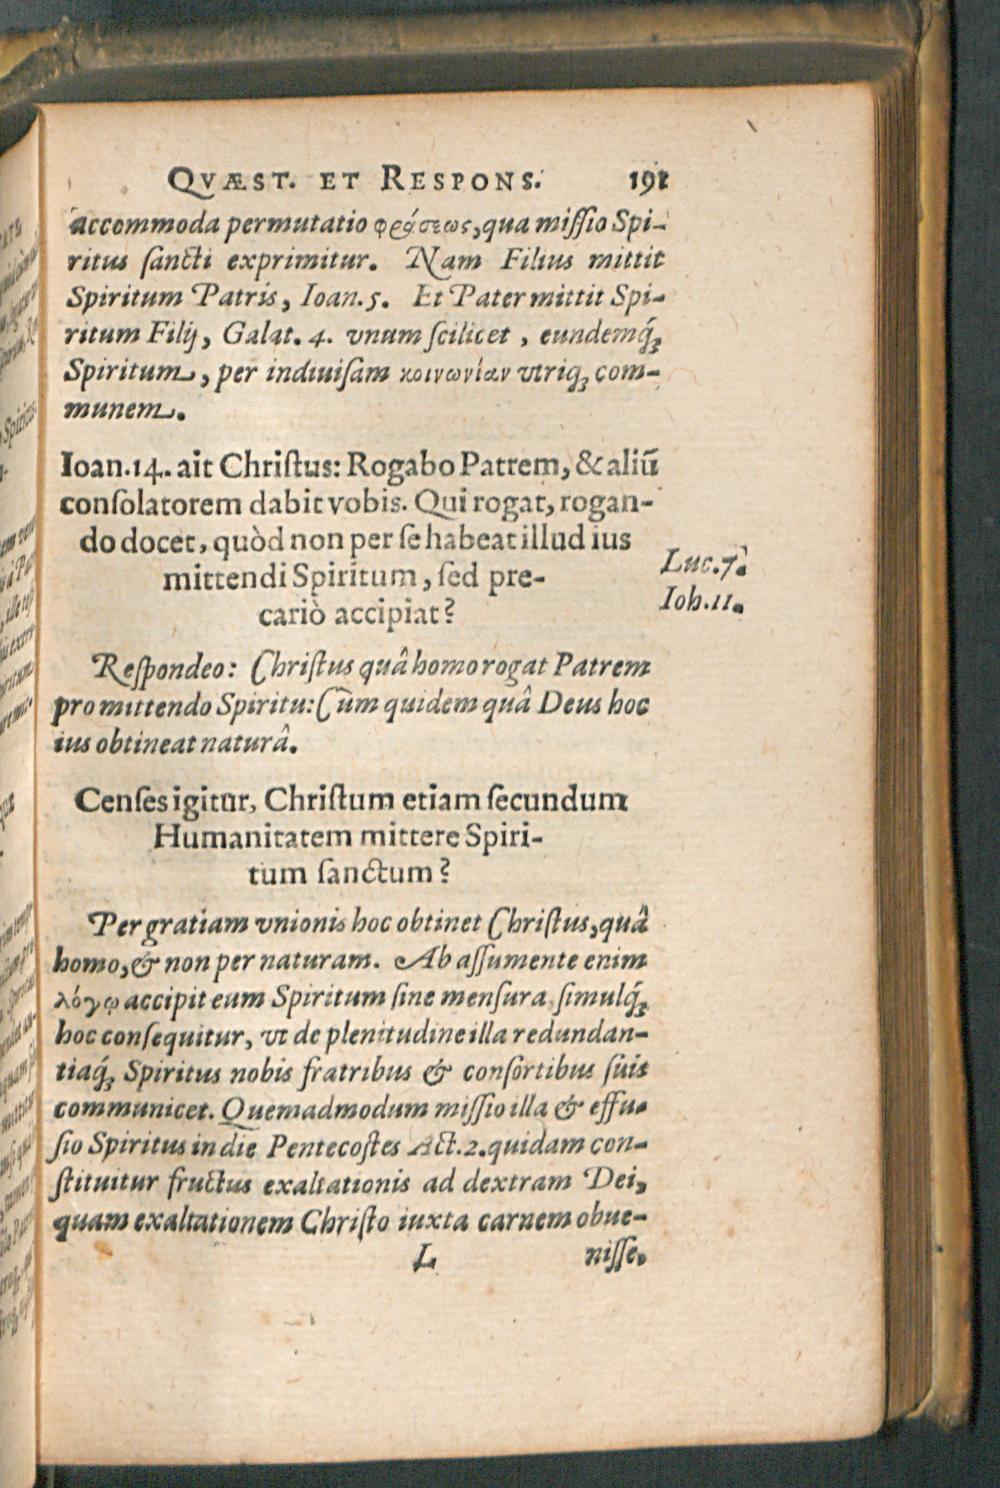 QVÆST. ET RESPONS. 191
accommoda permutatio φράσεως, qua miſſio Spi-
ritus ſancti exprimitur. Nam Filius mittit
Spiritum Patris, Ioan. 5. Et Pater mittit Spi-
ritum Filij, Galat. 4. vnum ſcilicet, eundemq́;
Spiritum, per indiuiſam κοινωνίαν vtriq; com-
munem.
Ioan. 14. ait Chriſtus: Rogabo Patrem, & aliū
conſolatorem dabit vobis. Qui rogat, rogan-
do docet, quòd non per ſe habeat illud ius
mittendi Spiritum, ſed pre-
cariò accipiat?
Luc. 7.
Ioh. 11.
Reſpondeo: Chriſtus quâ homo rogat Patrem
pro mittendo Spiritu: Cūm quidem quâ Deus hoc
ius obtineat naturâ.
Cenſes igitur, Chriſtum etiam ſecundum
Humanitatem mittere Spiri-
tum ſanctum?
Per gratiam vnionis hoc obtinet Chriſtus, quâ
homo, & non per naturam. Ab aſſumente enim
λόγῳ accipit eum Spiritum ſine menſura ſimulq́;
hoc conſequitur, vt de plenitudine illa redundan-
tiaq́; Spiritus nobis fratribus & conſortibus ſuis
communicet. Quemadmodum miſſio illa & effu-
ſio Spiritus in die Pentecoſtes Act. 2. quidam con-
ſtituitur fructus exaltationis ad dextram Dei,
quam exaltationem Chriſto iuxta carnem obue-
L niſſe,